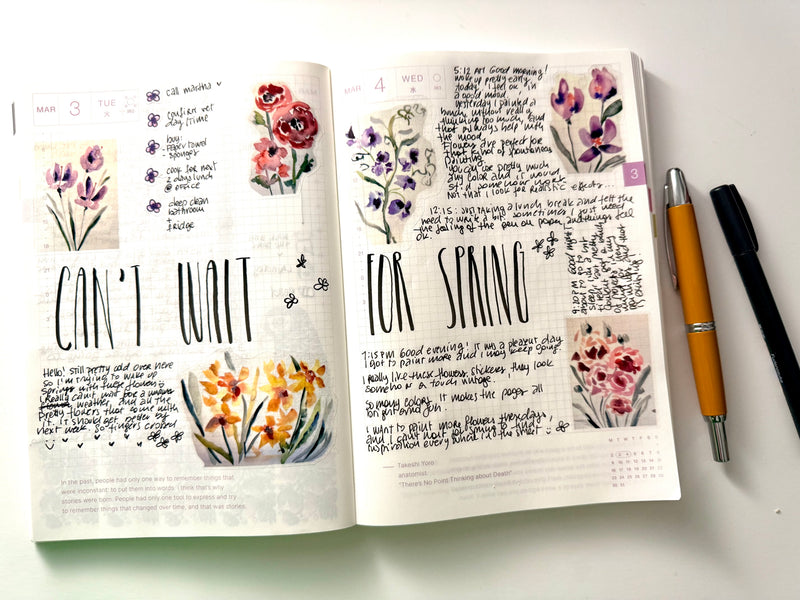 MAR 3 TUE
call martha
confirm vet
day/time
buy:
- paper towel
- sponges
cook for next
2 days lunch
@ office
deep clean
bathroom
+
fridge
CAN'T WAIT
Hello! Still pretty cold over here
so I'm trying to wake up
spring with these flowers
I really can't wait for a
weather, and all the
pretty flowers that come with
it. It should get better by
next week so fingers crossed
In the past, people had only one way to remember things that
were inconstant: to put them into words. I think that's why
stories were born. People had only one tool to express and try
to remember things that changed over time, and that was stories.
MAR 4 WED
5:12 AM Good morning!
woke up pretty early
today. I feel ok, in
a good mood.
Yesterday I painted a
bunch without really
thinking too much, and
that always help with
the mood.
Flowers are perfect for
that kind of spontaneous
painting.
You can use pretty much
any color and it would
still somehow work.
Not that I look for realistic effects...
12:15: Just taking a lunch break and felt the
need to write a bit. Sometimes I just need
the feeling of the pen on paper, and things feel
ok.
3
FOR SPRING
9:30 PM Good night!
about to go to
7:15 PM Good evening! It was a pleasant day
I got to paint more and I may keep going.
I really like these flowers stickers they look
somehow a touch vintage.
So many colors, it makes the pages all
bright and fun.
I want to paint more flowers these days,
and I can't wait for spring to find
inspiration every what in the street
— Takeshi Yoro
anatomist
"There's No Point Thinking about Death"
M T W T F S S